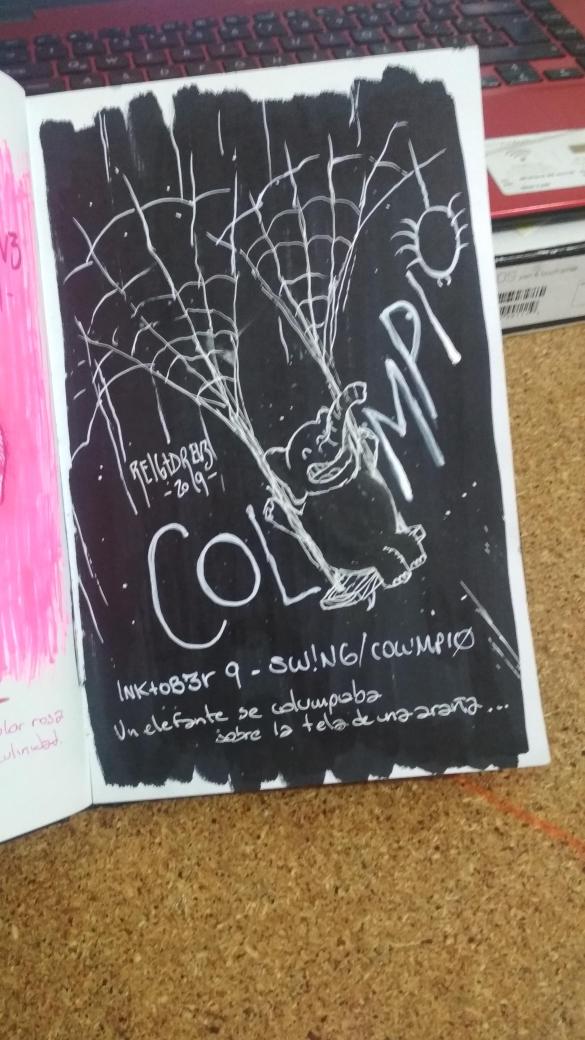 V3
REIGDREW31
-2019-
COL MPIO
INKtOB3r 9 - SW!NG/COLUMPIØ
Un elefante se columpiaba
sobre la tela de una araña...
olor rosa